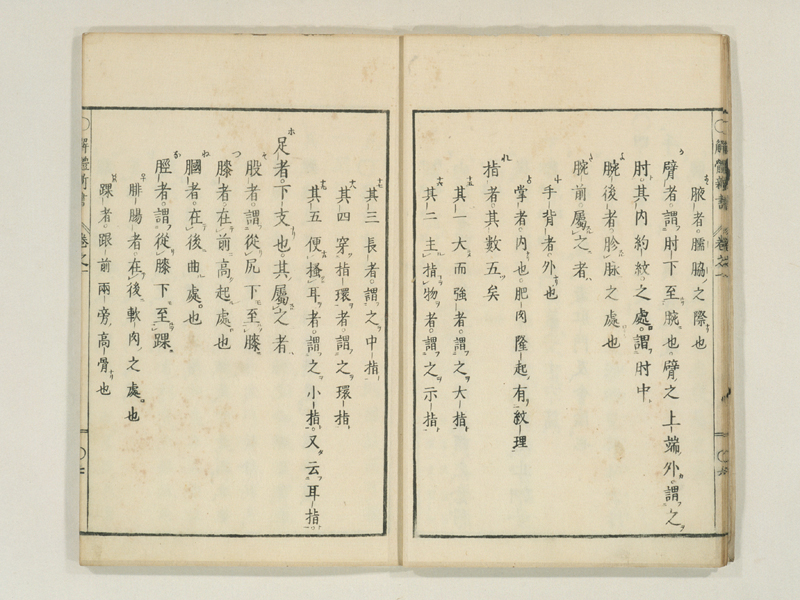 腋者。臑脇之際也
臂者。謂肘下至腕也。臂之上端外謂之
肘。其内約紋之處。謂肘中
腕後者。診脉之處也
腕前。屬之者
手背者外也
掌者。内也。肥肉隆起。有紋理
指者其數五矣
其一大而強者。謂之大指
其二主指物者。謂之示指
其三長者。謂之中指
其四穿指環者。謂之環指
其五便搔耳者。謂之小指。又云耳指
足者。下支也。其屬之者
股者。謂從尻下至膝
膝者。在前高起處也
膕者。在後曲處也
脛者。謂從膝下至踝
腓腸者。在後軟肉之處也
踝者。跟前兩旁。高骨也
解體新書
卷之一